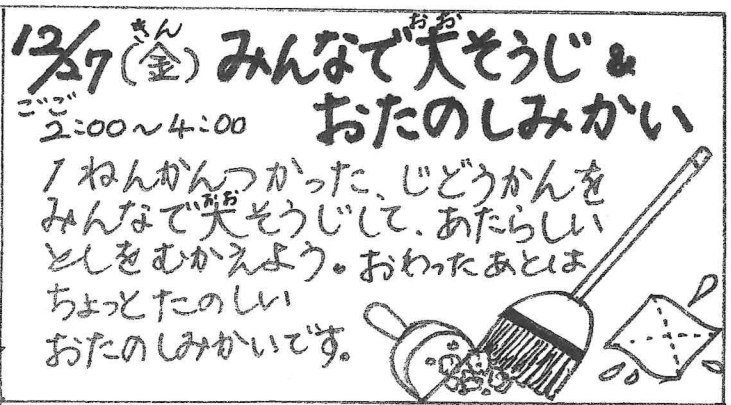 12/27(金) みんなで大そうじ&
おたのしみかい
ごご
2:00～4:00
1ねんかんつかった、じどうかんを
みんなで大そうじして、あたらしい
としをむかえよう。おわったあとは
ちょっとたのしい
おたのしみかいです。